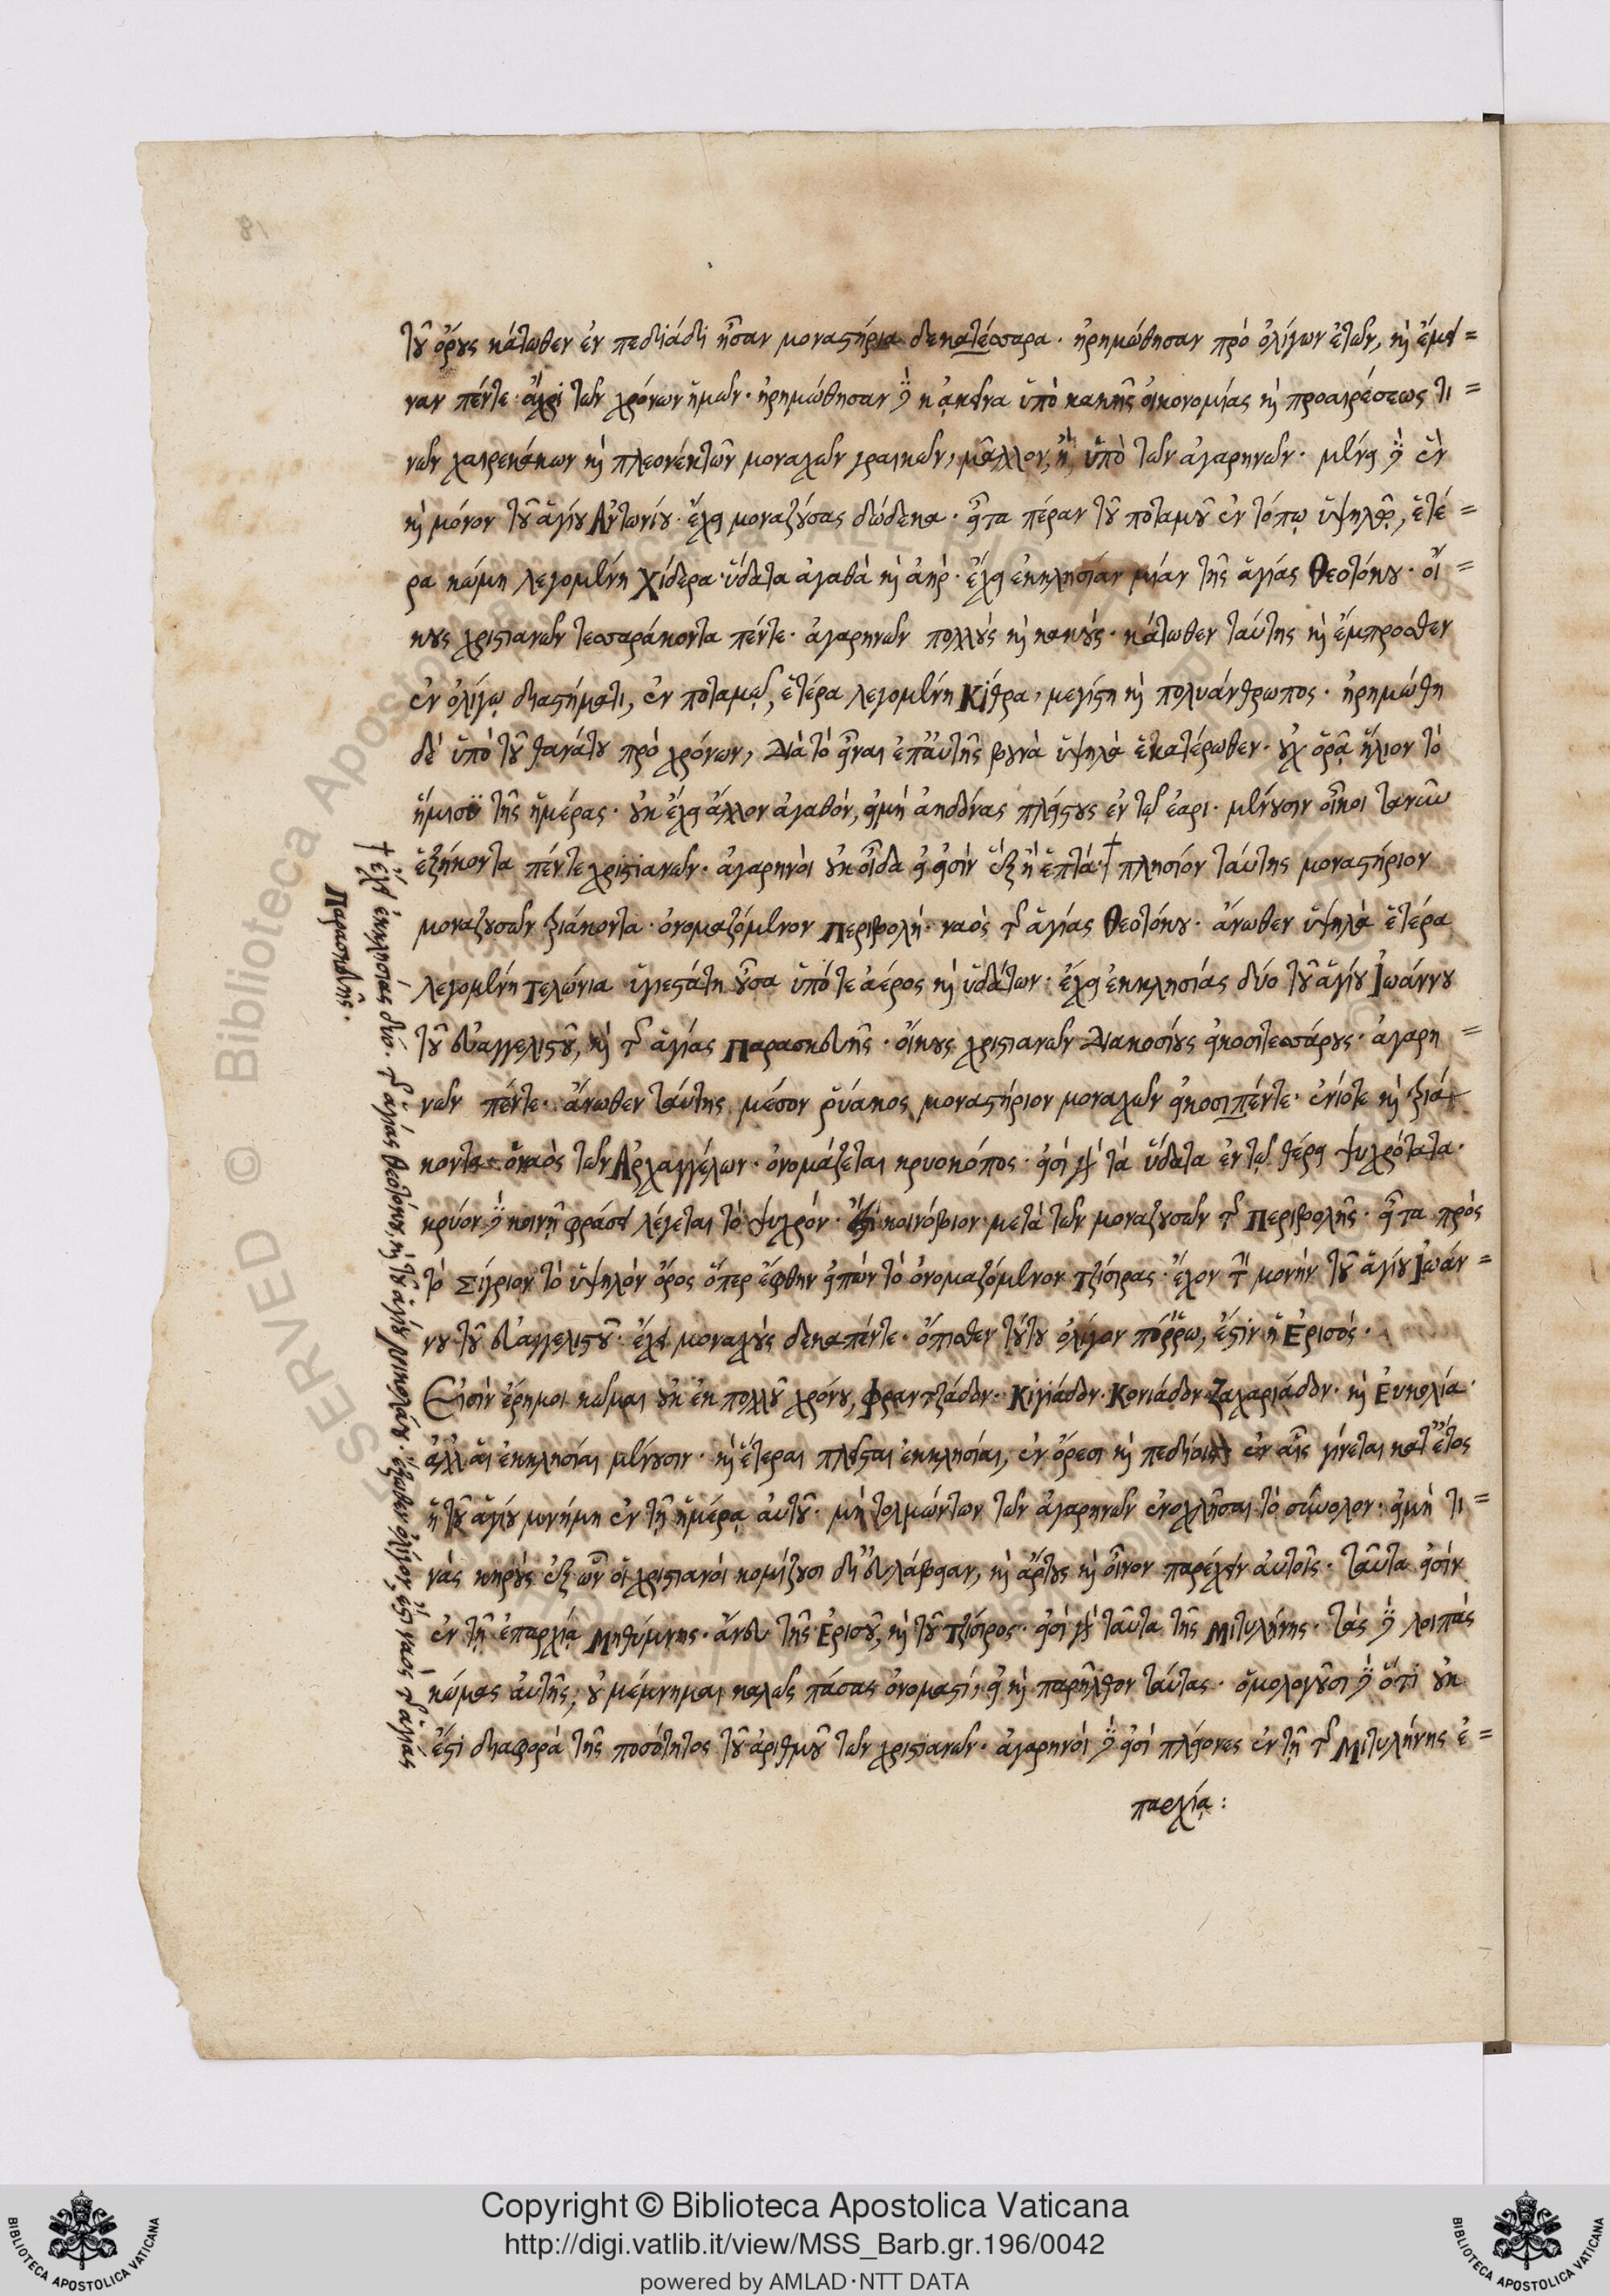 81
τοῦ ὄρους κάτωθεν ἐν πεδιάδι ἦσαν μοναστήρια δεκατέσσαρα · ἠρημώθησαν πρὸ ὀλίγων ἐτῶν, καὶ ἔμει=
ναν πέντε ἄχρι τῶν χρόνων ἡμῶν · ἠρημώθησαν δὲ κἀκεῖνα ὑπὸ κακῆς οἰκονομίας καὶ προαιρέσεως τι=
νῶν χαιρεκάκων καὶ πλεονέκτων μοναχῶν γραικῶν, μᾶλλον, ἢ, ὑπὸ τῶν ἀγαρηνῶν · μένει δὲ ἓν
καὶ μόνον τοῦ ἁγίου Ἀντωνίου · ἔχει μοναζούσας δώδεκα · εἶτα πέραν τοῦ ποταμοῦ ἐν τόπῳ ὑψηλῷ, ἑτέ=
ρα κώμη λεγομένη Χίδερα · ὕδατα ἀγαθὰ καὶ ἀὴρ · ἔχει ἐκκλησίαν μίαν τῆς ἁγίας Θεοτόκου · οἴ=
κους χριστιανῶν τεσσαράκοντα πέντε · ἀγαρηνῶν πολλοὺς καὶ κακούς · κάτωθεν ταύτης καὶ ἔμπροσθεν
ἐν ὀλίγῳ διαστήματι, ἐν ποταμῷ, ἑτέρα λεγομένη Κίθρα, μεγίστη καὶ πολυάνθρωπος · ἠρημώθη
δὲ ὑπὸ τοῦ θανάτου πρὸ χρόνων, διὰ τὸ εἶναι ἐπ' αὐτῆς βουνὰ ὑψηλὰ ἑκατέρωθεν · οὐχ ὁρᾷ ἥλιον τὸ
ἥμισυ τῆς ἡμέρας · οὐκ ἔχει ἄλλον ἀγαθόν, εἰμὴ ἀηδόνας πλείστους ἐν τῷ ἔαρι · μένουσιν οἶκοι τανῦν
ἑξήκοντα πέντε χριστιανῶν · ἀγαρηνοὶ οὐκ οἶδα εἰ εἰσὶν ἓξ ἢ ἑπτά · † πλησίον ταύτης μοναστήριον
μοναζουσῶν τριάκοντα · ὀνομαζόμενον Περιβολή · ναὸς τῆς ἁγίας Θεοτόκου · ἄνωθεν ὑψηλὰ ἑτέρα
λεγομένη Τελώνια ὑγιεστάτη οὖσα ὑπό τε ἀέρος καὶ ὑδάτων · ἔχει ἐκκλησίας δύο τοῦ ἁγίου Ἰωάννου
τοῦ εὐαγγελιστοῦ, καὶ τῆς ἁγίας Παρασκευῆς · οἴκους χριστιανῶν διακοσίους εἰκοσιτεσσάρους · ἀγαρη=
νῶν πέντε · ἄνωθεν ταύτης μέσον ῥύακος μοναστήριον μοναχῶν εἰκοσιπέντε · ἐνίοτε καὶ τριά
κοντα · ὁ ναὸς τῶν Ἀρχαγγέλων · ὀνομάζεται κρυοκόπος · εἰσὶ γὰρ τὰ ὕδατα ἐν τῷ θέρει ψυχρότατα ·
κρύον δὲ κοινῇ φράσει λέγεται τὸ ψυχρόν · κοινόβιον μετὰ τῶν μοναζουσῶν τῆς Περιβολῆς · εἶτα πρὸς
τὸ Σίγριον τὸ ὑψηλὸν ὄρος ὅπερ ἔφθην εἰπὼν τὸ ὀνομαζόμενον Τζίσιρας · ἔχον τὴν μονὴν τοῦ ἁγίου Ἰωάν=
νου τοῦ εὐαγγελιστοῦ · ἔχει μοναχοὺς δεκαπέντε · ὄπισθεν τούτου ὀλίγον πόρρω, ἐστὶν ἡ Ἐρισός ·
Εἰσὶν ἔρημοι κῶμαι οὐκ ἐκ πολλοῦ χρόνου, Φραντζάδων · Κιγιάδων · Κονιάδων · Ζαχαριάδων · καὶ Εὐκολία ·
ἀλλ' αἱ ἐκκλησίαι μένουσιν · καὶ ἕτεραι πλεῖσται ἐκκλησίαι, ἐν ὄρεσι καὶ πεδίοις ἐν αἷς γίνεται κατ' ἔτος
ἡ τοῦ ἁγίου μνήμη ἐν τῇ ἡμέρᾳ αὐτοῦ · μὴ τολμώντων τῶν ἀγαρηνῶν ἐνοχλῆσαι τὸ σύνολον · εἰμὴ τι=
νὰς κηροὺς ἐξ ὧν οἱ χριστιανοὶ κομίζουσι δι' εὐλάβειαν, καὶ ἄρτους καὶ οἶνον παρέχειν αὐτοῖς · ταῦτα εἰσὶν
ἐν τῇ ἐπαρχίᾳ Μηθύμνης · ἄνευ τῆς Ἐρισοῦ, καὶ τοῦ Τζίσιρος · εἰσὶ γὰρ ταῦτα τῆς Μιτυλήνης · τὰς δὲ λοιπὰς
κώμας αὐτῆς, οὐ μέμνημαι καλῶς πάσας ὀνομαστί, εἰ καὶ παρῆλθον ταύτας · ὁμολογοῦσι δὲ ὅτι οὐκ
ἔστι διαφορὰ τῆς ποσότητος τοῦ ἀριθμοῦ τῶν χριστιανῶν · ἀγαρηνοὶ δὲ εἰσὶ πλείονες ἐν τῇ τῆς Μιτυλήνης ἐ=
παρχίᾳ :
† ἔχει ἐκκλησίας δύο · τῆς ἁγίας θεοτόκου, καὶ τοῦ ἁγίου Νικολάου · ἔξωθεν ὀλίγον, ἐστὶ ναὸς τῆς ἁγίας
Παρασκευῆς ·
Copyright © Biblioteca Apostolica Vaticana
http://digi.vatlib.it/view/MSS_Barb.gr.196/0042
powered by AMLAD·NTT DATA
BIBLIOTECA APOSTOLICA VATICANA
BIBLIOTECA APOSTOLICA VATICANA